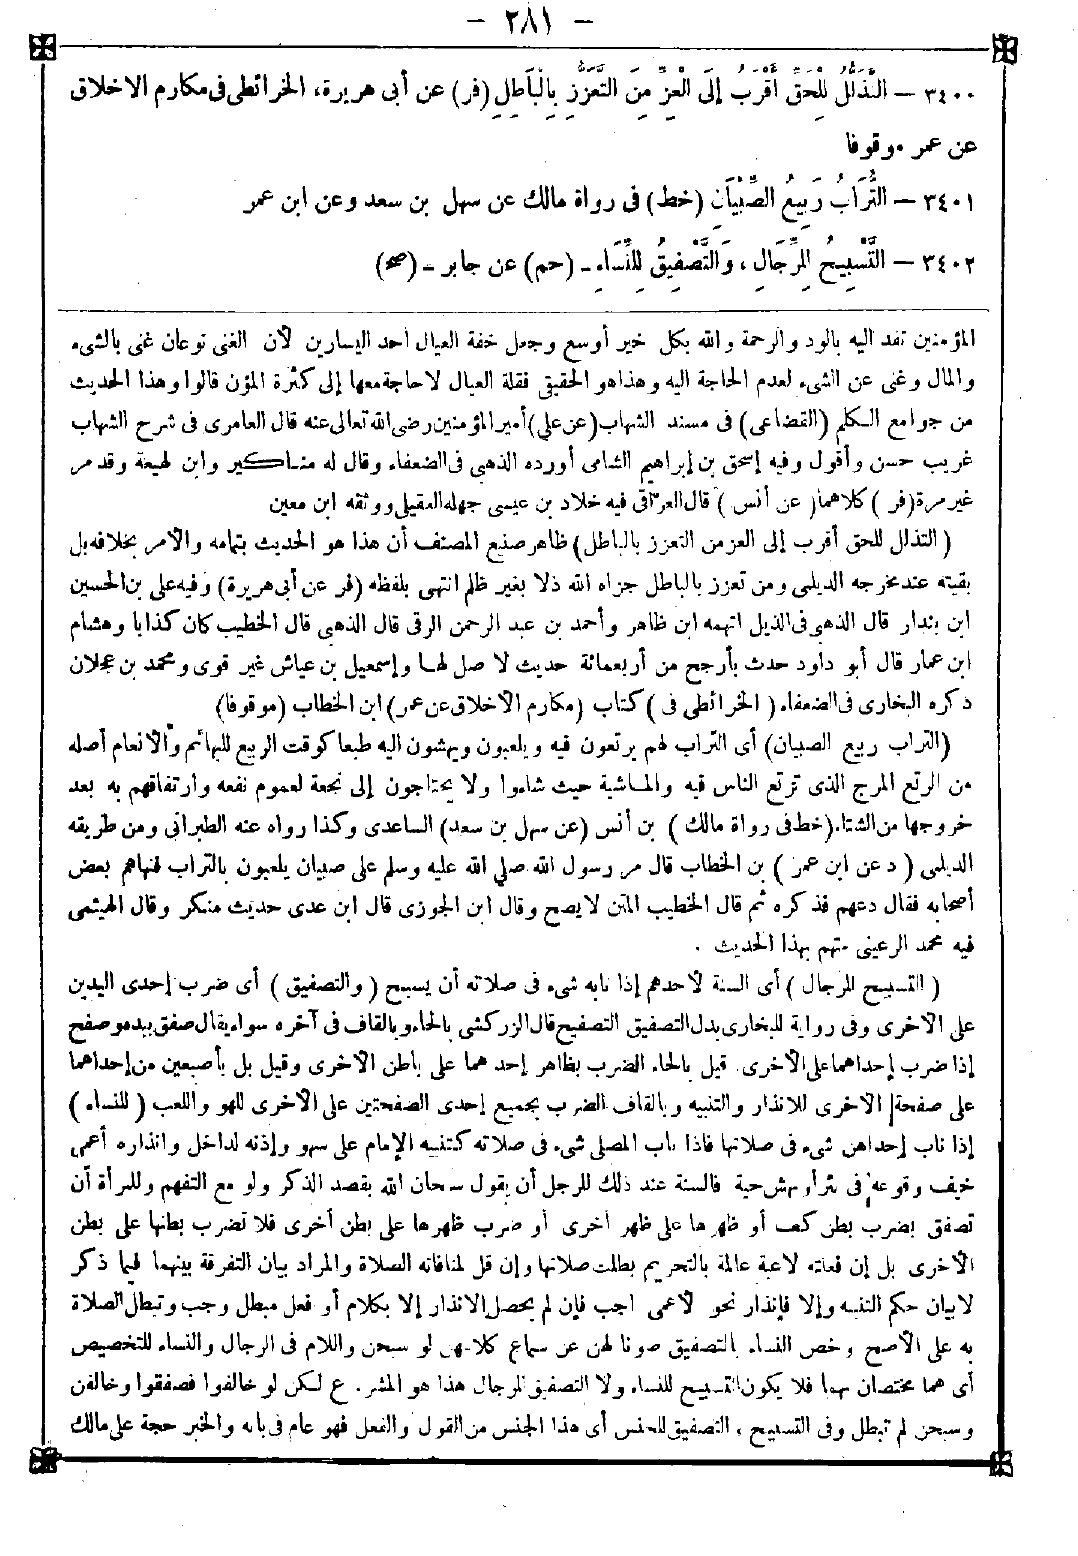 - ٢٨١ -
٣٤٠٠ – التَّذَلُّلُ لِلْحَقِّ أَقْرَبُ إِلَى الْعِزِّ مِنَ التَّعَزُّزِ بِالْبَاطِلِ (فر) عن أبى هريرة، الخرائطى فى مكارم الاخلاق
عن عمر موقوفا
٣٤٠١ – التُّرَابُ رَبِيعُ الصِّبْيَانِ (خط) فى رواة مالك عن سهل بن سعد وعن ابن عمر
٣٤٠٢ – التَّسْبِيحُ لِلرِّجَالِ، وَالتَّصْفِيقُ لِلنِّسَاءِ - (حم) عن جابر - (صح)
المؤمنين تفد اليه بالود والرحمة والله بكل خير أوسع وجعل خفة العيال أحد اليسارين لأن الغنى نوعان غنى بالشىء
والمال وغنى عن الشىء لعدم الحاجة اليه وهذا هو الحقيقى فقلة العيال لا حاجة معها إلى كثرة المؤن قالوا وهذا الحديث
من جوامع الكلم (القضاعى) فى مسند الشهاب (عن على) أمير المؤمنين رضى الله تعالى عنه قال العامرى فى شرح الشهاب
غريب حسن وأقول وفيه إسحق بن إبراهيم الشامى أورده الذهبى فى الضعفاء وقال له مناكير وابن لهيعة وقد مر
غير مرة (فر) كلاهما (عن أنس) قال العراقى فيه خلاد بن عيسى جهله العقيلى ووثقه ابن معين
(التذلل للحق أقرب إلى العز من التعزز بالباطل) ظاهر صنيع المصنف أن هذا هو الحديث بتمامه والأمر بخلافه بل
بقيته عند مخرجه الديلمى ومن تعزز بالباطل جزاه الله ذلا بغير ظلم انتهى بلفظه (فر عن أبى هريرة) وفيه على بن الحسين
ابن بندار قال الذهبى فى الذيل اتهمه ابن طاهر وأحمد بن عبد الرحمن الرقى قال الذهبى قال الخطيب كان كذابا وهشام
ابن عمار قال أبو داود حدث بأرجح من أربعمائة حديث لا صل لها وإسمعيل بن عياش غير قوى ومحمد بن عجلان
ذكره البخارى فى الضعفاء (الخرائطى فى) كتاب (مكارم الأخلاق عن عمر) ابن الخطاب (موقوفا)
(التراب ربيع الصبيان) أى التراب لهم يرتعون فيه ويلعبون ويهشون اليه طبعا كوقت الربيع للبهائم والأنعام أصله
من الرتع المرج الذى ترتع الناس فيه والماشية حيث شاءوا ولا يحتاجون إلى نجعة لعموم نفعه وارتفاقهم به بعد
خروجها من الشتاء (خط فى رواة مالك) بن أنس (عن سهل بن سعد) الساعدى وكذا رواه عنه الطبرانى ومن طريقه
الديلمى (د عن ابن عمر) بن الخطاب قال مر رسول الله صلى الله عليه وسلم على صبيان يلعبون بالتراب فنهاهم بعض
أصحابه فقال دعهم فذكره ثم قال الخطيب المتن لا يصح وقال ابن الجوزى قال ابن عدى حديث منكر وقال الهيثمى
فيه محمد الرعينى متهم بهذا الحديث .
(التسبيح للرجال) أى السنة لأحدهم إذا نابه شىء فى صلاته أن يسبح (والتصفيق) أى ضرب إحدى اليدين
على الأخرى وفى رواية للبخارى بدل التصفيق التصفيح قال الزركشى بالحاء وبالقاف فى آخره سواء يقال صفق بيده وصفح
إذا ضرب إحداهما على الأخرى وقيل بالحاء الضرب بظاهر إحدهما على باطن الأخرى وقيل بل بأصبعين من إحداهما
على صفحة الأخرى للانذار والتنبيه وبالقاف الضرب بجميع إحدى الصفحتين على الأخرى للهو واللعب (للنساء)
إذا ناب إحداهن شىء فى صلاتها فاذا ناب المصلى شىء فى صلاته كتنبيه الإمام على سهو وإذنه لداخل وانذاره أعمى
خيف وقوعه فى بئر أو نهش حية فالسنة عند ذلك للرجل أن يقول سبحان الله بقصد الذكر ولو مع التفهم وللمرأة أن
تصفق بضرب بطن كف أو ظهرها على ظهر أخرى أو ضرب ظهرها على بطن أخرى فلا تضرب بطنها على بطن
الأخرى بل إن فعلته لاعبة عالمة بالتحريم بطلت صلاتها وإن قل لمنافاته الصلاة والمراد بيان التفرقة بينهما فيما ذكر
لا بيان حكم التنبيه وإلا فإنذار نحو الأعمى واجب فإن لم يحصل الانذار إلا بكلام أو فعل مبطل وجب وتبطل الصلاة
به على الأصح وخص النساء بالتصفيق صونا لهن عن سماع كلامهن لو سبحن واللام فى الرجال والنساء للتخصيص
أى هما مختصان بهما فلا يكون التسبيح للنساء ولا التصفيق للرجال هذا هو المشرع لكن لو خالفوا فصفقوا وخالفن
وسبحن لم تبطل وفى التسبيح، التصفيق للجنس أى هذا الجنس من القول والفعل فهو عام فى بابه والخبر حجة على مالك